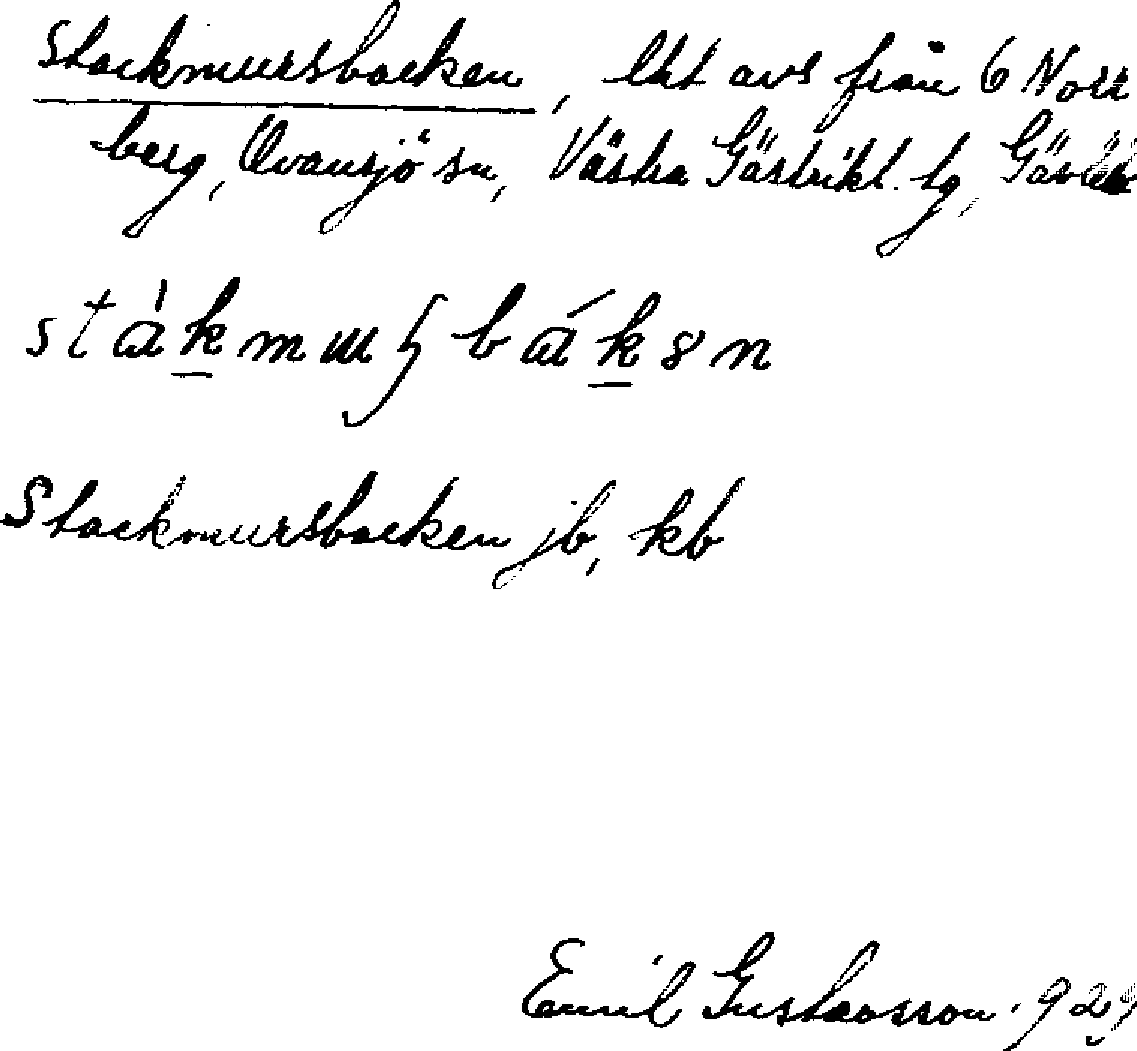 Stackmursbacken, lht avs från 6 Norr
berg, Ovansjö sn, Västra Gästrikl. tg,
Stackmursbacken jb, kb
Emil Gustavsson. 929